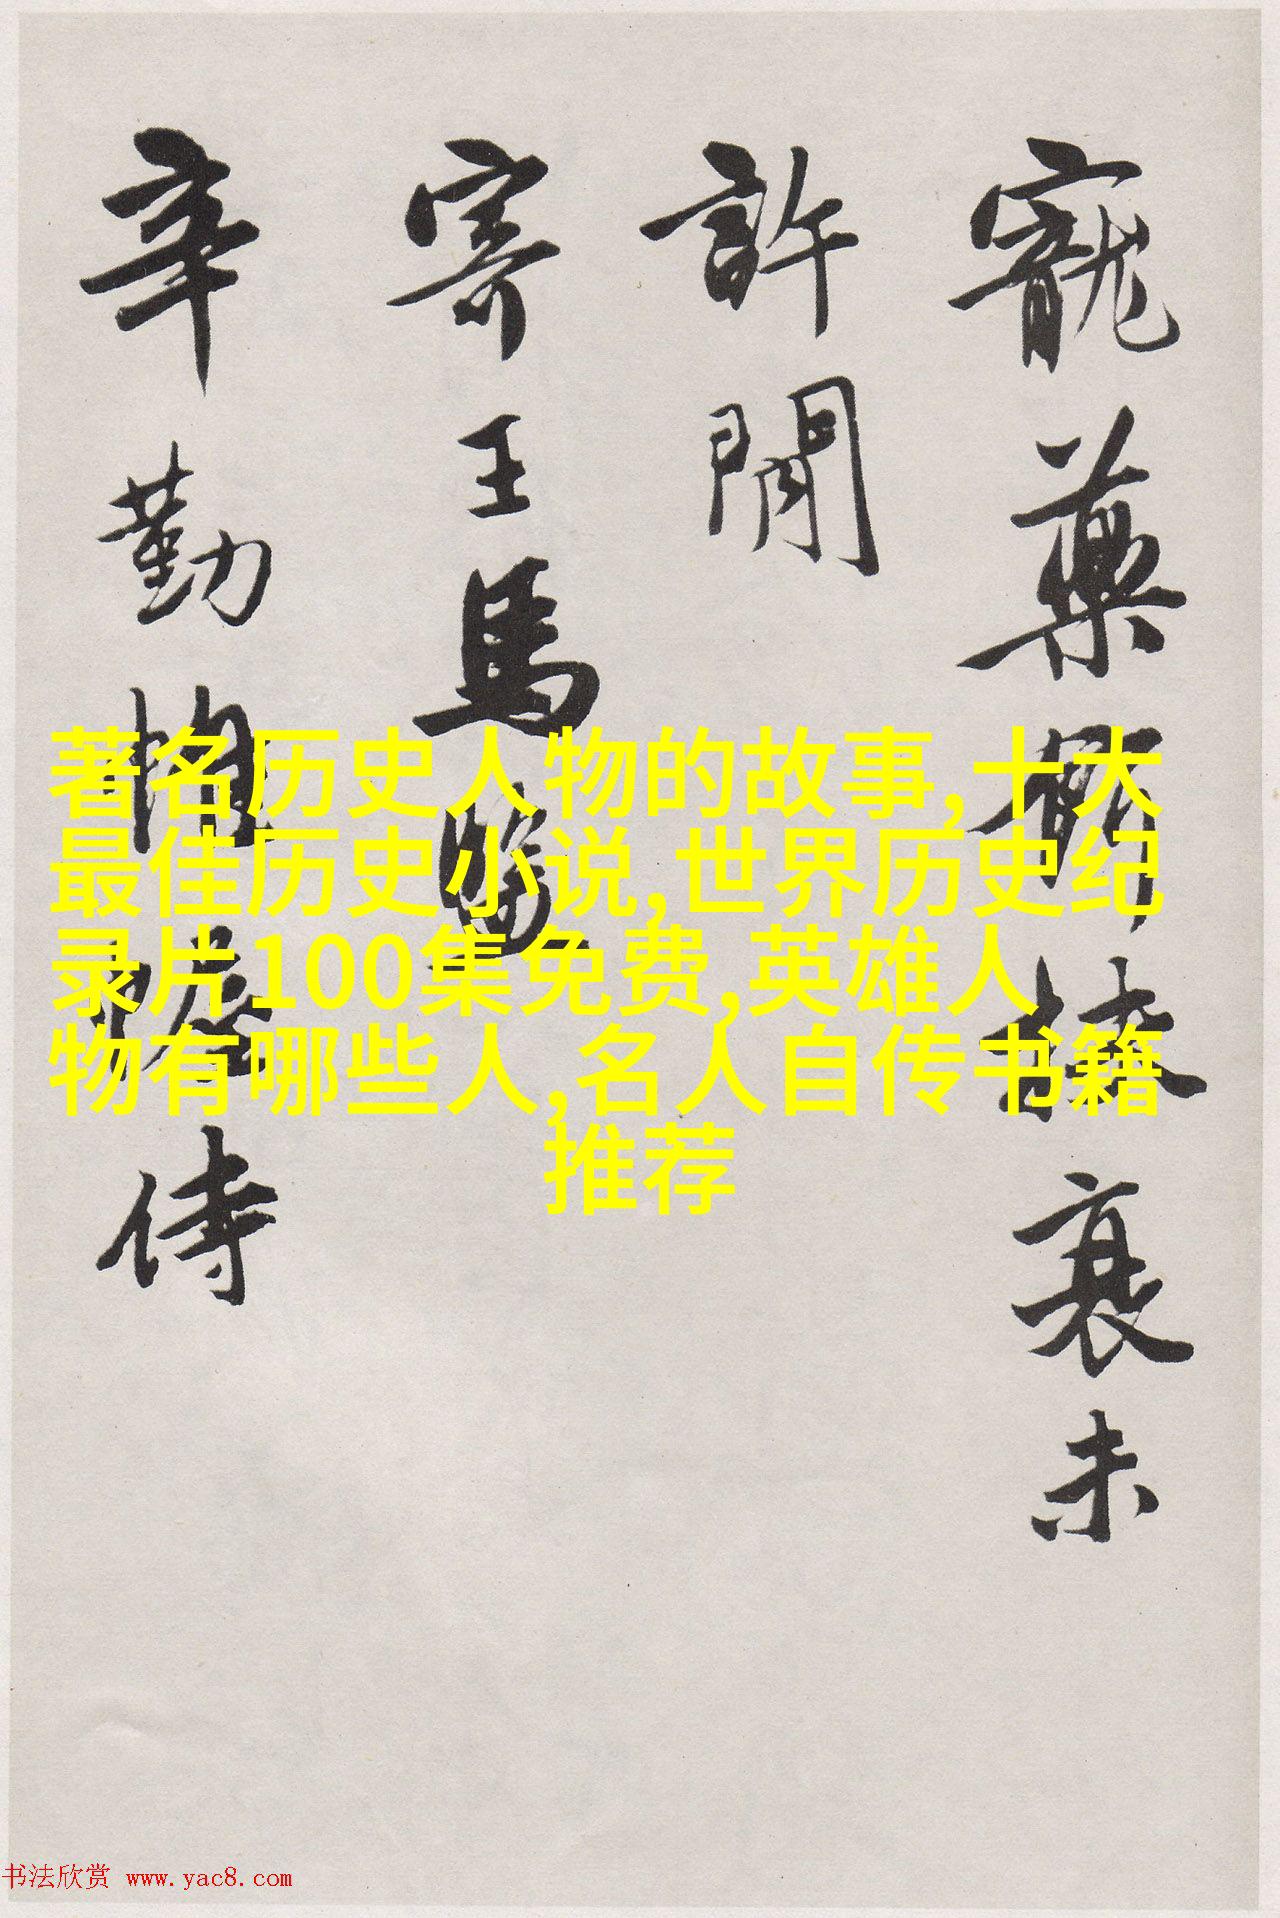 寵藥鄉扶衰未
許閒
寄王馬醫
辛勤惟愧侍
著名历史人物的故事,十大
最佳历史小说,世界历史纪
录片100集免费,英雄人
物有哪些人,名人自传书籍
推荐
书法欣赏 www.yac8.com